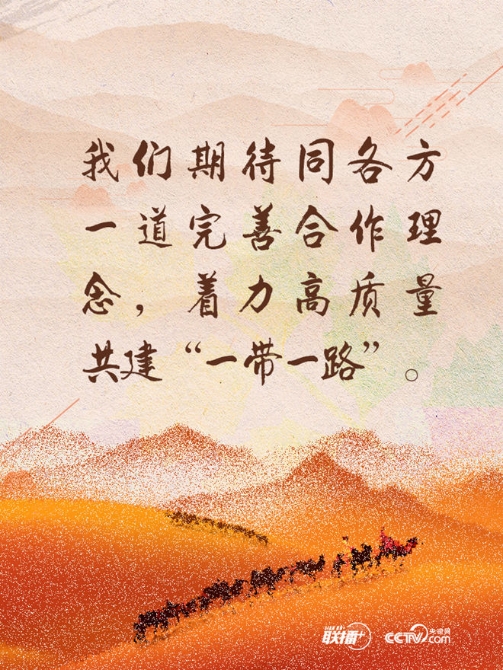 我们期待同各方
一道完善合作理
念，着力高质量
共建“一带一路”。
联播+
CCTV
央视网
com